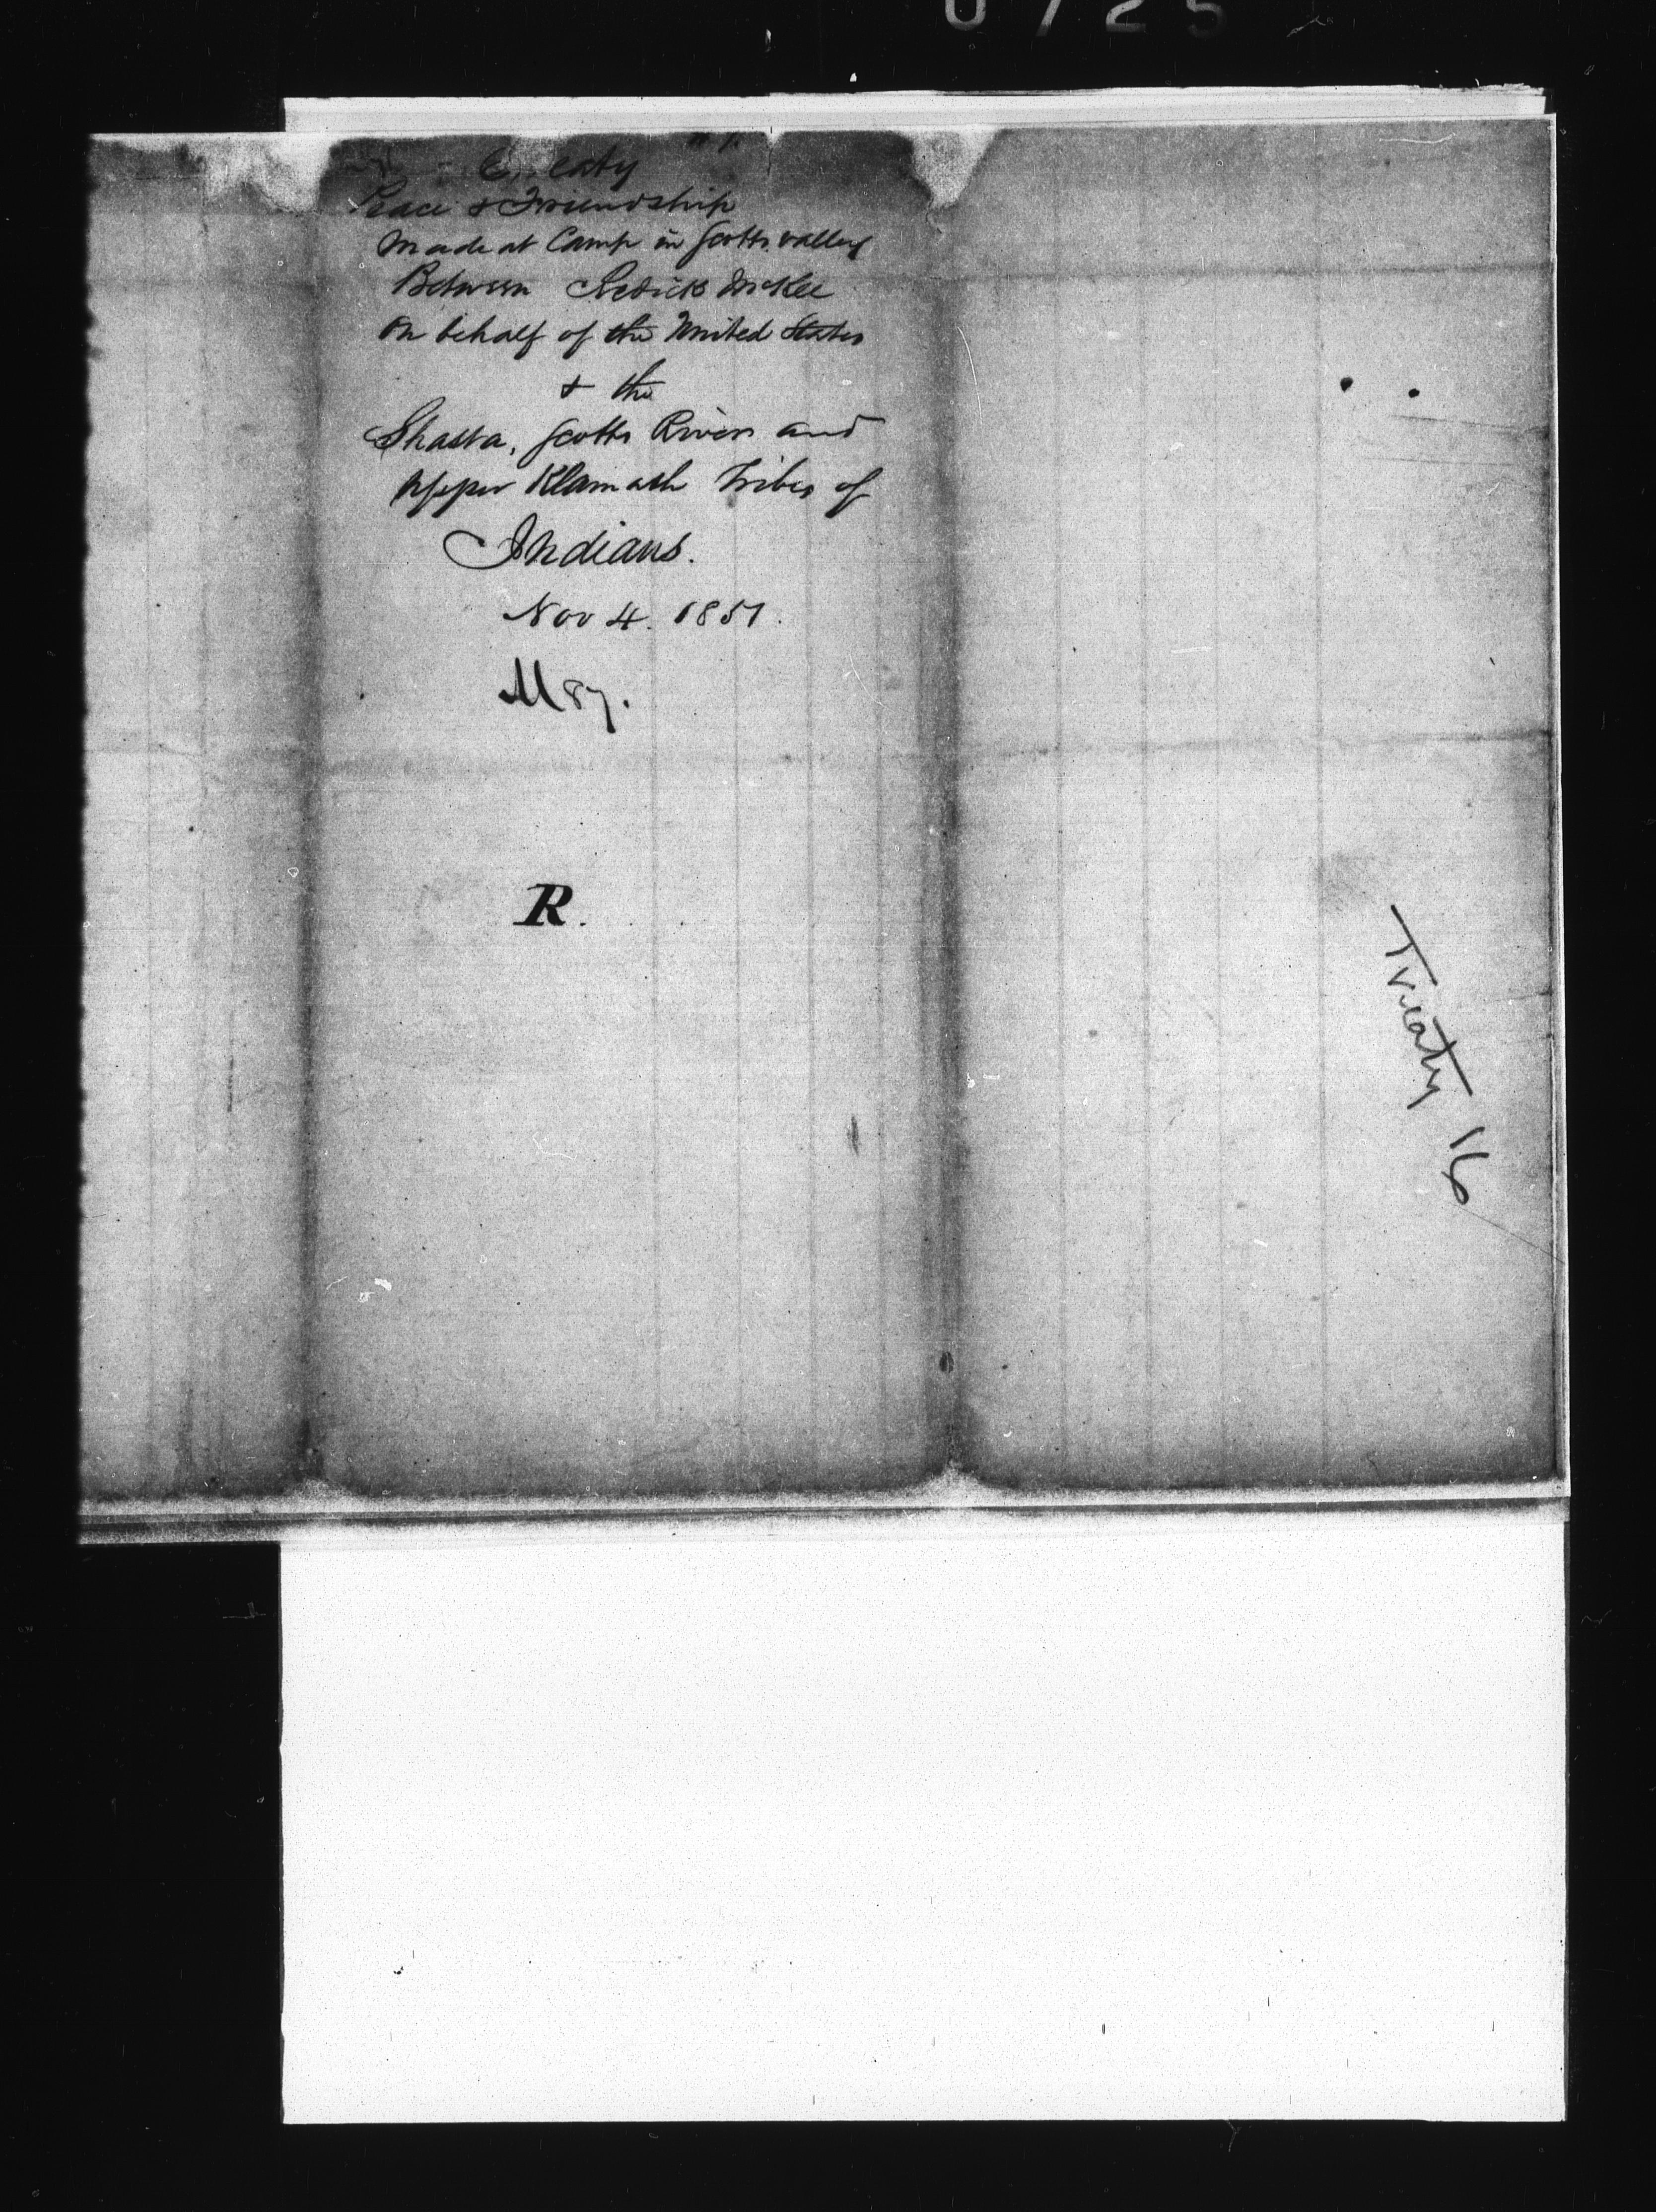 0725
Treaty
Peace & Friendship
Made at Camp in Scotts valley
Between Redick McKee
On behalf of the United States
& the
Shasta, Scotts River and
Upper Klamath Tribes of
Indians.
Nov 4. 1851.
M 87.
R.
Treaty 16